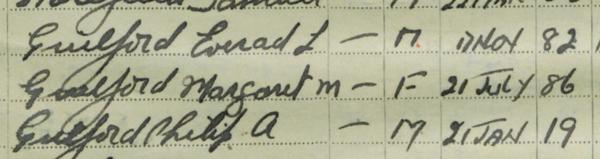 Guilford Everad L — M 17 NOV 82
Guilford Margaret M — F 21 JULY 86
Guilford Philip A — M 21 JAN 19